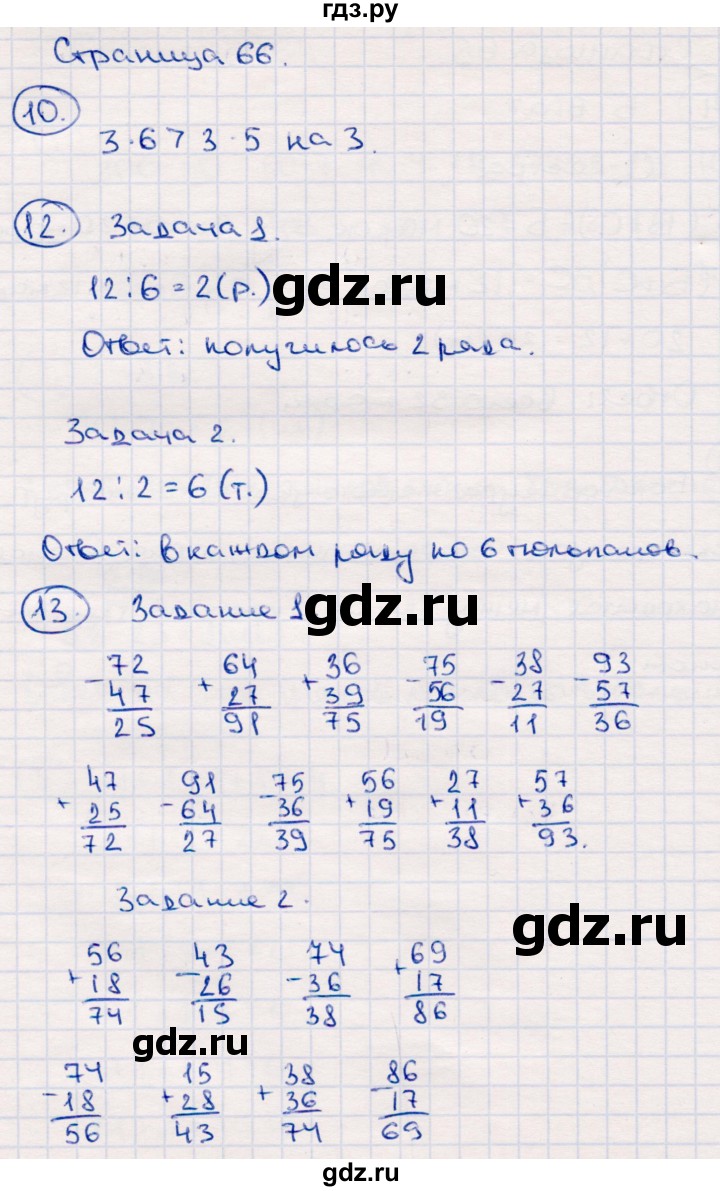 гдз.ру
Страница 66.
10.
3·6 7 3·5 на 3.
12. Задача 1.
12:6=2(р.)
gdz.ru
Ответ: получилось 2 ряда.
Задача 2.
12:2=6(т.)
Ответ: в каждом ряду по 6 тюльпанов.
13. Задание 1
gdz.ru
72 64 36 75 38 93
- 47 + 27 + 39 - 56 - 27 - 57
25 91 75 19 11 36
47 91 75 56 27 57
+ 25 - 64 - 36 + 19 + 11 + 36
72 27 39 75 38 93.
Задание 2.
gdz.ru
56 43 74 69
+ 18 - 26 - 36 + 17
74 15 38 86
gdz.ru
74 15 38 86
- 18 + 28 + 36 - 17
56 43 74 69
gdz.ru